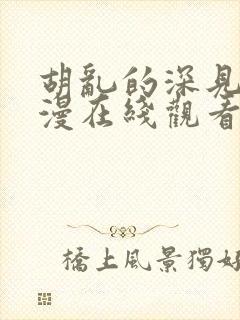 胡亂的深見
漫在綫觀看
橋上風景獨好